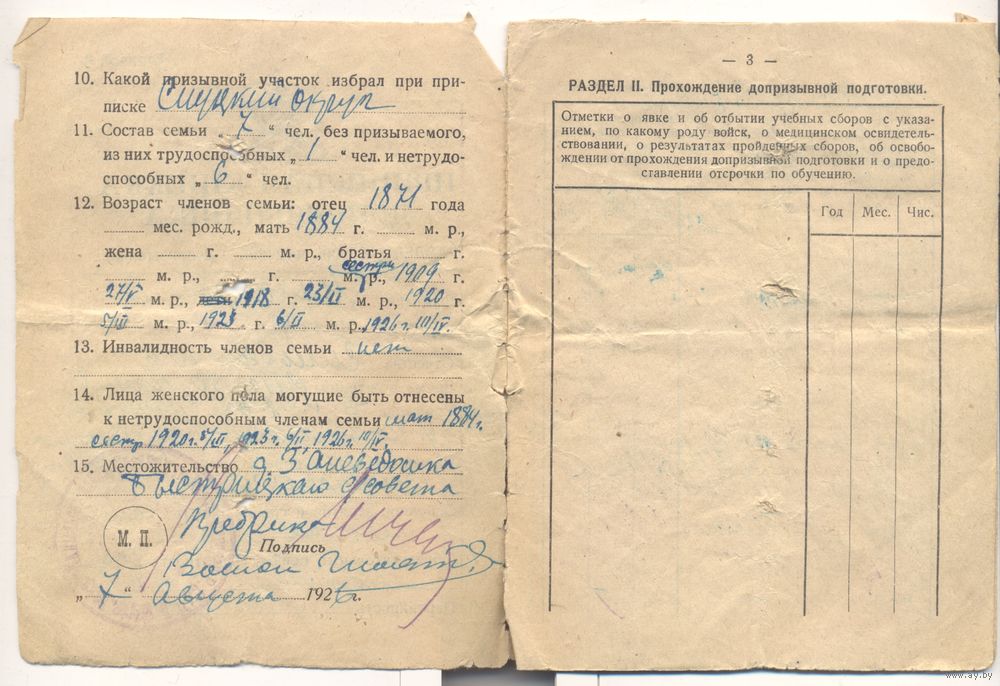 10. Какой призывной участок избрал при при-
писке Слуцкий округ
11. Состав семьи „ 7 “ чел. без призываемого,
из них трудоспособных „ 1 “ чел. и нетрудо-
способных „ 6 “ чел.
12. Возраст членов семьи: отец 1871 года
мес. рожд., мать 1884 г. м. р.,
жена г. м. р., братья г.
м. р., г. сестры м. р., 1909 г.
27/V м. р., дети 1918 г. 23/II м. р., 1920 г.
5/III м. р., 1923 г. 6/II м. р., 1926 г. 10/IV.
13. Инвалидность членов семьи нет
14. Лица женского пола могущие быть отнесены
к нетрудоспособным членам семьи мат 1884 г.
сестр 1920 г. 5/III, 1923 г. 6/II, 1926 г. 10/IV.
15. Местожительство д.
совета
М. П.
Подпись
„ 7 “ Августа 1926 г.
— 3 —
РАЗДЕЛ II. Прохождение допризывной подготовки.
Отметки о явке и об отбытии учебных сборов с указа-
нием, по какому роду войск, о медицинском освидетель-
ствовании, о результатах пройденных сборов, об освобо-
ждении от прохождения допризывной подготовки и о предо-
ставлении отсрочки по обучению.
Год Мес. Чис.
www.ay.by